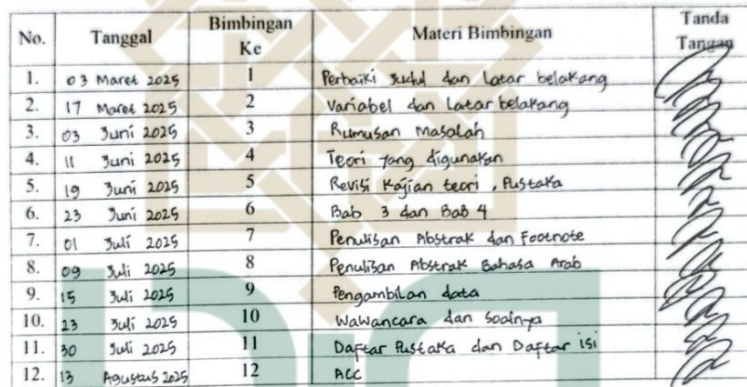 No. Tanggal Bimbingan Ke Materi Bimbingan Tanda Tangan
1. 03 Maret 2025 1 Perbaiki Judul dan latar belakang
2. 17 Maret 2025 2 Variabel dan latar belakang
3. 03 Juni 2025 3 Rumusan Masalah
4. 11 Juni 2025 4 Teori yang digunakan
5. 19 Juni 2025 5 Revisi Kajian teori, Pustaka
6. 23 Juni 2025 6 Bab 3 dan Bab 4
7. 01 Juli 2025 7 Penulisan Abstrak dan Footnote
8. 09 Juli 2025 8 Penulisan Abstrak Bahasa Arab
9. 15 Juli 2025 9 Pengambilan data
10. 23 Juli 2025 10 Wawancara dan Soalnya
11. 30 Juli 2025 11 Daftar Pustaka dan Daftar isi
12. 13 Agustus 2025 12 ACC